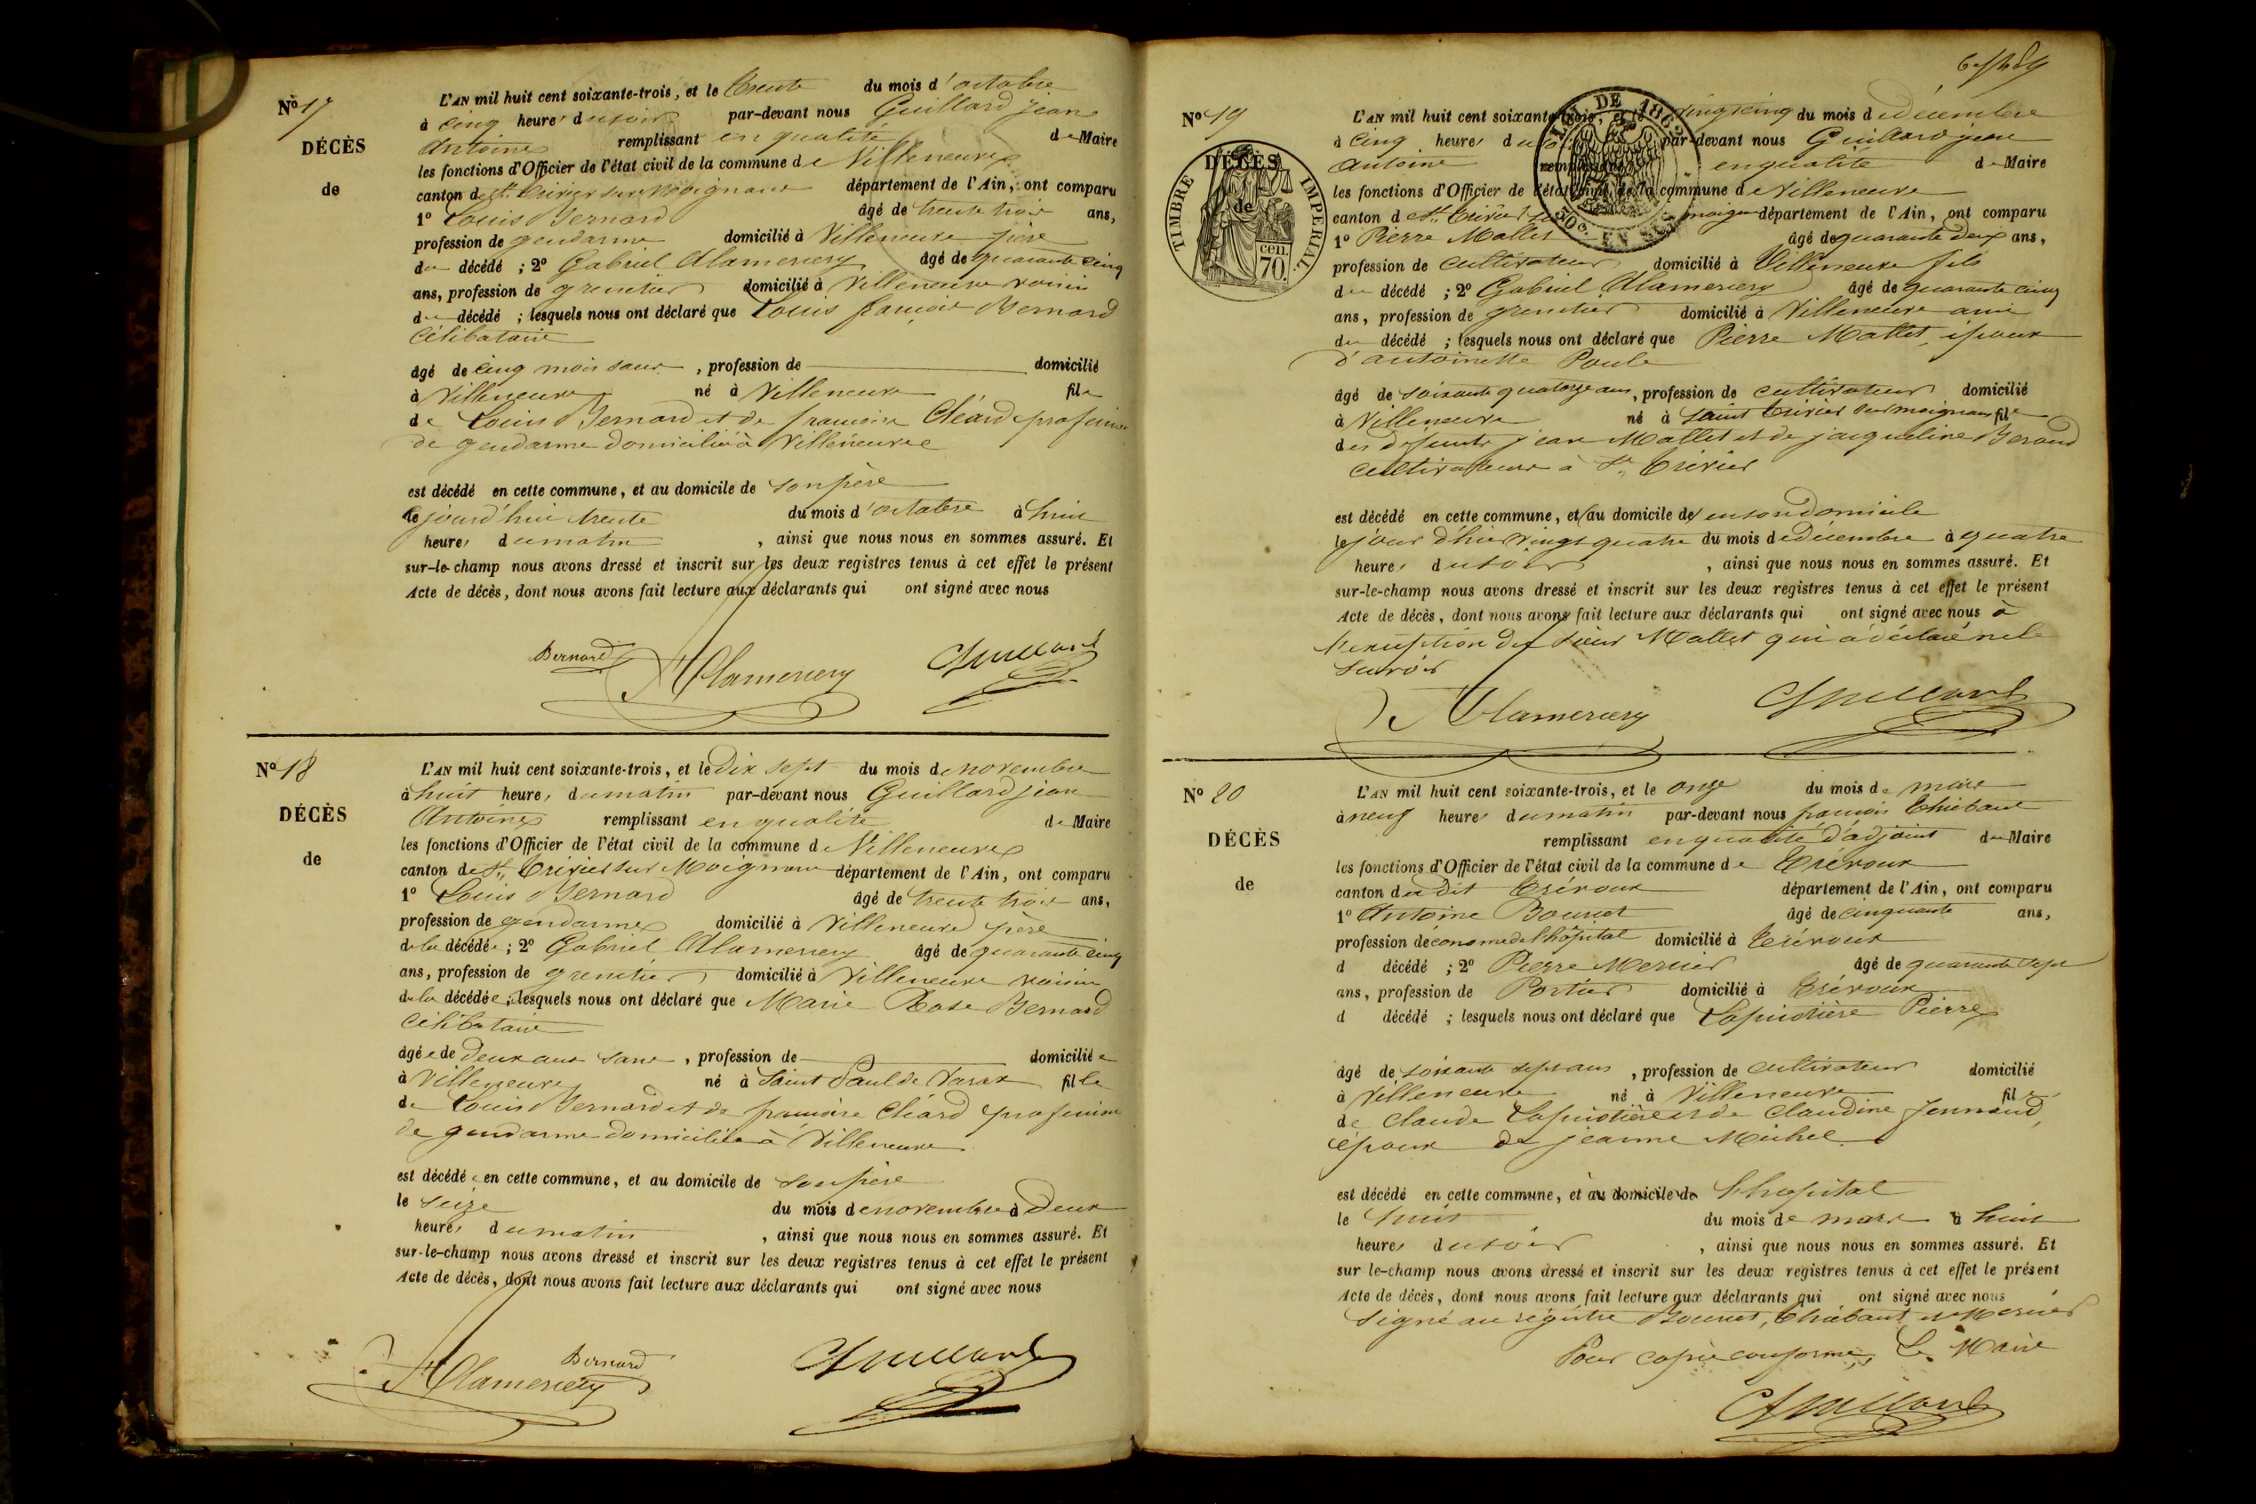 No 17
DÉCÈS
de
L'AN mil huit cent soixante-trois, et le trente du mois d'octobre
à cinq heures du soir par-devant nous Guillard jean
Antoine remplissant en qualité de Maire
les fonctions d'Officier de l'état civil de la commune de Villeneuve
canton de St. Trivier sur Moignans département de l'Ain, ont comparu
1º Louis Bernard âgé de trente trois ans,
profession de gendarme domicilié à Villeneuve père
du décédé ; 2º Gabriel Alamercery âgé de quarante cinq
ans, profession de grenetier domicilié à Villeneuve voisin
du décédé ; lesquels nous ont déclaré que Louis françois Bernard
célibataire
âgé de cinq mois sans , profession de domicilié
à Villeneuve né à Villeneuve fils
de Louis Bernard et de françoise Cléard profession
de gendarme domicilié à Villeneuve
est décédé en cette commune, et au domicile de son père
le jourd'hui trente du mois d'octobre à huit
heures du matin , ainsi que nous nous en sommes assuré. Et
sur-le-champ nous avons dressé et inscrit sur les deux registres tenus à cet effet le présent
Acte de décès, dont nous avons fait lecture aux déclarants qui ont signé avec nous
Bernard Alamercery Guillard
No 18
DÉCÈS
de
L'AN mil huit cent soixante-trois, et le dix sept du mois de novembre
à huit heures du matin par-devant nous Guillard jean
Antoine remplissant en qualité de Maire
les fonctions d'Officier de l'état civil de la commune de Villeneuve
canton de St. Trivier sur Moignans département de l'Ain, ont comparu
1º Louis Bernard âgé de trente trois ans,
profession de gendarme domicilié à Villeneuve père
de la décédée ; 2º Gabriel Alamercery âgé de quarante cinq
ans, profession de grenetier domicilié à Villeneuve voisin
de la décédée ; lesquels nous ont déclaré que Marie Rose Bernard
célibataire
âgée de deux ans sans , profession de domiciliée
à Villeneuve né à Saint Paul de Varax fille
de Louis Bernard et de françoise Cléard profession
de gendarme domiciliée à Villeneuve
est décédée en cette commune, et au domicile de son père
le seize du mois de novembre à deux
heures du matin , ainsi que nous nous en sommes assuré. Et
sur-le-champ nous avons dressé et inscrit sur les deux registres tenus à cet effet le présent
Acte de décès, dont nous avons fait lecture aux déclarants qui ont signé avec nous
Bernard
Alamercery Guillard
No 19
DÉCÈS
de
TIMBRE IMPÉRIAL
cen.
70.
L'AN mil huit cent soixante-trois, et le vingt cinq du mois de décembre
à cinq heures du soir par-devant nous Guillard jean
Antoine remplissant en qualité de Maire
les fonctions d'Officier de l'état civil de la commune de Villeneuve
canton de St. Trivier sur moignans département de l'Ain, ont comparu
1º Pierre Mallet âgé de quarante deux ans,
profession de cultivateur domicilié à Villeneuve fils
du décédé ; 2º Gabriel Alamercery âgé de quarante cinq
ans, profession de grenetier domicilié à Villeneuve ami
du décédé ; lesquels nous ont déclaré que Pierre Mallet, époux
d'antoinette Poule
âgé de soixante quatorze ans, profession de cultivateur domicilié
à Villeneuve né à Saint Trivier sur moignans fils
des défunts jean Mallet et de jacqueline Beraud
cultivateurs à St. Trivier
est décédé en cette commune, et au domicile de en son domicile
le jour d'hier vingt quatre du mois de décembre à quatre
heures du soir , ainsi que nous nous en sommes assuré. Et
sur-le-champ nous avons dressé et inscrit sur les deux registres tenus à cet effet le présent
Acte de décès, dont nous avons fait lecture aux déclarants qui ont signé avec nous à
l'exception du sieur Mallet qui a déclaré ne le
savoir
Alamercery Guillard
No 20
DÉCÈS
de
L'AN mil huit cent soixante-trois, et le onze du mois de mars
à neuf heures du matin par-devant nous françois Chabaut
remplissant en qualité d'adjoint du Maire
les fonctions d'Officier de l'état civil de la commune de Trévoux
canton du dit Trévoux département de l'Ain, ont comparu
1º Antoine Bouret âgé de cinquante ans,
profession d'économe de l'hôpital domicilié à Trévoux
d décédé ; 2º Pierre Mercier âgé de quarante sept
ans, profession de Portier domicilié à Trévoux
d décédé ; lesquels nous ont déclaré que Lapiotière Pierre
âgé de soixante sept ans , profession de cultivateur domicilié
à Villeneuve né à Villeneuve fils
de Claude Lapiotière et de Claudine
époux de jeanne Michel
est décédé en cette commune, et au domicile de l'hopital
le huit du mois de mars à huit
heures du soir , ainsi que nous nous en sommes assuré. Et
sur le-champ nous avons dressé et inscrit sur les deux registres tenus à cet effet le présent
Acte de décès, dont nous avons fait lecture aux déclarants qui ont signé avec nous
Signé au régistre Bouret, Chabaut et Mercier
Pour copie conforme, Le Maire
Guillard